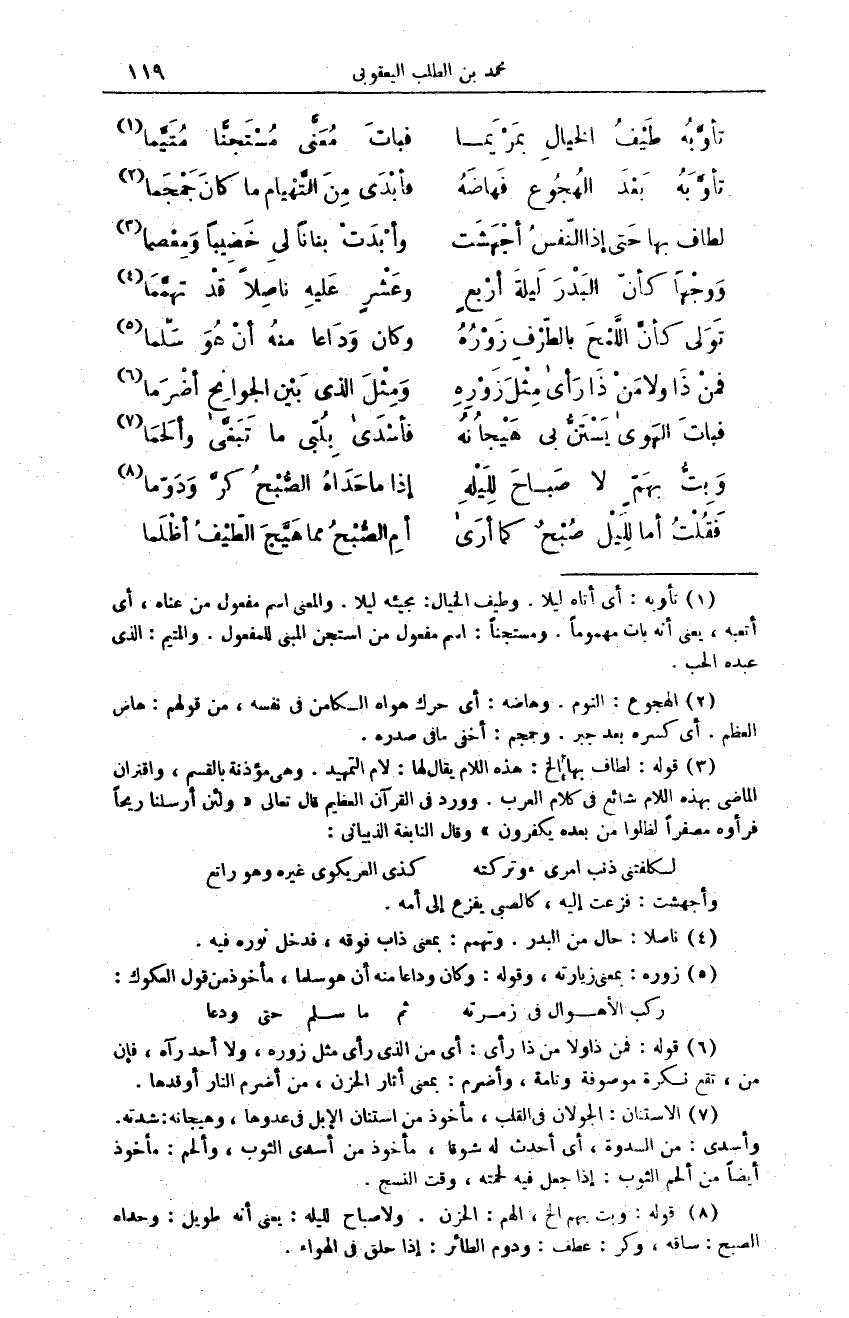 محمد بن الطلب اليعقوبى ١١٩
تأوَّبَهُ طَيْفُ الخيالِ بمَرْيَمـا فباتَ مُعَنًّى مُسْتَجنًّا مُتَيَّما (١)
تأوَّبَهُ بَعْدَ الهُجُوع فَهاضَهُ فأبْدَى مِنَ التَّهْيام ما كانَ جَمْجَما (٢)
لطاف بها حَتى إذا النّفسُ أجْهَشَت وأبْدَتْ بناناً لى خَضِيباً وَمِعْصما (٣)
وَوجْهاً كأنّ البَدْرَ لَيلةَ أرْبعٍ وعَشْرٍ عَليهِ ناصِلاً قدْ تهمَّمَا (٤)
تَوَلى كأنَّ اللَّمْحَ بالطَّرْفِ زَوْرُهُ وكان وَدَاعا منهُ أنْ هُوَ سَلَّما (٥)
فمنْ ذَا ولا مَنْ ذَا رَأىٰ مِثْلَ زَوْرِهِ وَمِثْلَ الذى بَيْنِ الجوانِح أضْرَمَا (٦)
فباتَ الهَوىٰ يَسْتَنُّ بى هَيَجانُهُ فأسْدَىٰ بِلُبّى ما تَبَغَّىٰ وألحَمَا (٧)
وَبِتُّ بِهَمّ لا صَبـاحَ لِلَيْلهِ إذا ما حَدَاهُ الصُّبْحُ كرَّ وَدَوّما (٨)
فَقُلْتُ أما لِلَّيْل صُبْحٌ كما أرَىٰ أمِ الصُّبْحُ مما هَيَّجَ الطّيْفُ أظْلَما
(١) تأوبه : أى أتاه ليلا . وطيف الخيال : مجيئه ليلا . والمعنى اسم مفعول من عناه ، أى
أتعبه ، يعنى أنه بات مهموماً . ومستجناً : اسم مفعول من استجن المبنى للمفعول . والمتيم : الذى
عبده الحب .
(٢) الهجوع : النوم . وهاضه : أى حرك هواه الـكامن فى نفسه ، من قولهم : هاض
العظم . أى كسره بعد جبر . وجمجم : أخفى مافى صدره .
(٣) قوله : لطاف بها إلخ : هذه اللام يقال لها : لام التمهيد . وهى مؤذنة بالقسم ، واقتران
الماضى بهذه اللام شائع فى كلام العرب . وورد فى القرآن العظيم قال تعالى « ولئن أرسلنا ريحاً
فرأوه مصفراً لظلوا من بعده يكفرون » وقال النابغة الذبيانى :
لـكلفتنى ذنب امرى ء وتركته كذى العر يكوى غيره وهو راتع
وأجهشت : فزعت إليه ، كالصبي يفزع إلى أمه .
(٤) ناصلا : حال من البدر . وتهمم : بمعنى ذاب فوقه ، فدخل نوره فيه .
(٥) زوره : بمعنى زيارته ، وقوله : وكان وداعا منه أن هو سلما ، مأخوذ من قول العكوك :
ركب الأهـوال فى زمـرته ثم ما سـلم حتى ودعا
(٦) قوله : فمن ذاولا من ذا رأى : أى من الذى رأى مثل زوره ، ولا أحد رآه ، فإن
من ، تقع نـكرة موصوفة وتامة ، وأضرم : بمعنى أثار الحزن ، من أضرم النار أوقدها .
(٧) الاستنان : الجولان فى القلب ، مأخوذ من استنان الإبل فى عدوها ، وهيجانه : شدته.
وأسدى : من السدوة ، أى أحدث له شوقا ، مأخوذ من أسدى الثوب ، وألحم : مأخوذ
أيضاً من ألحم الثوب : إذا جعل فيه لحمته ، وقت النسج .
(٨) قوله : وبت بهم الخ ، الهم : الحزن . ولاصباح لليله : يعنى أنه طويل : وحداه
الصبح : ساقه ، وكر : عطف : ودوم الطائر : إذا حلق فى الهواء .